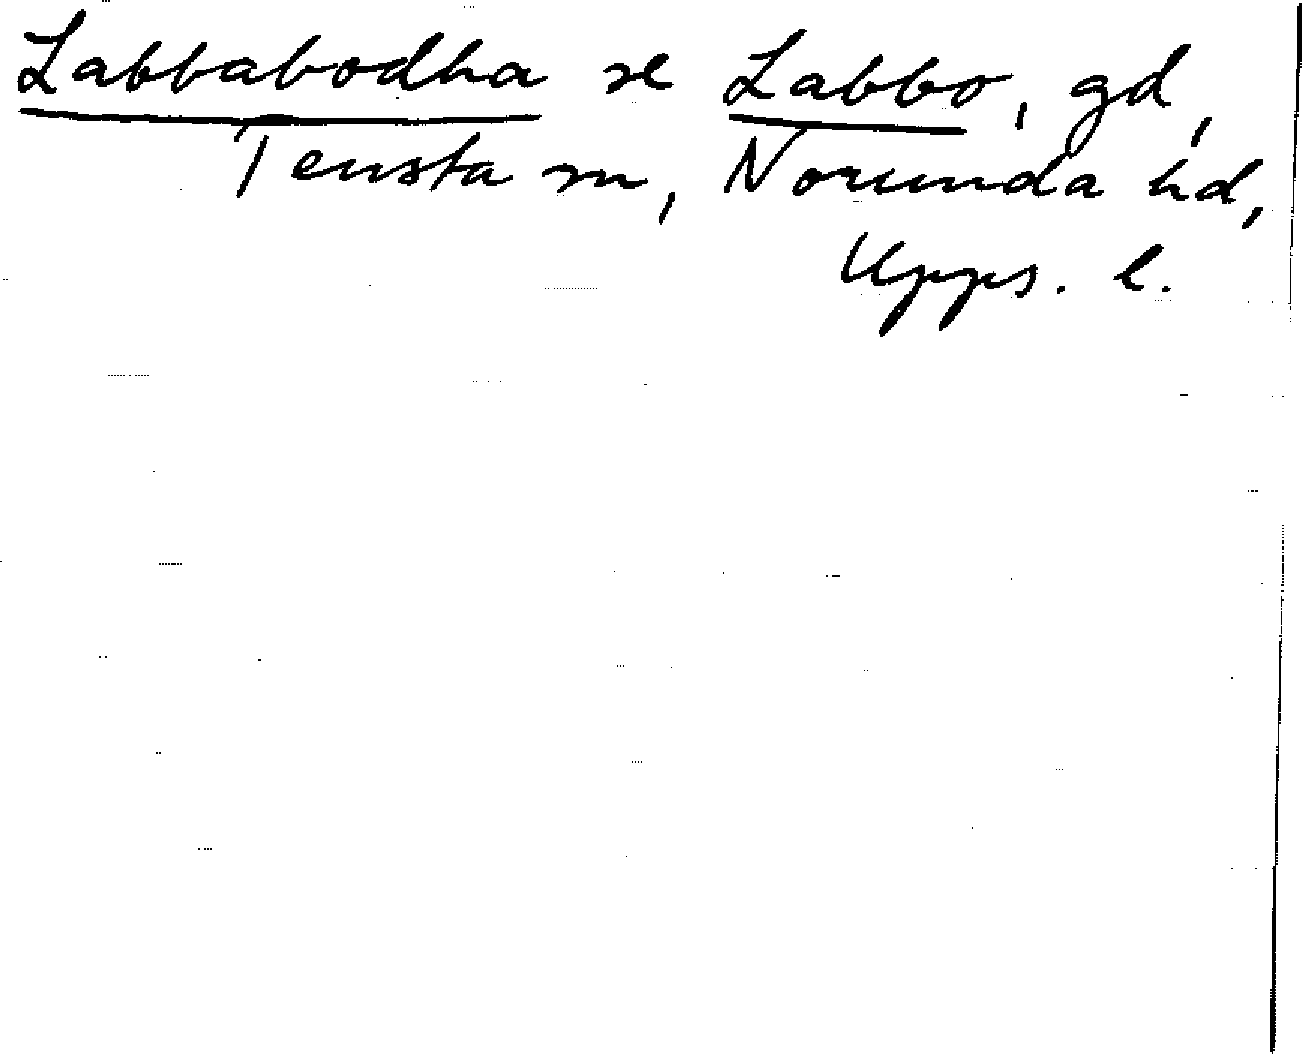 Labbabodha se Labbo, gd,
Tensta sn, Norunda hd,
Upps. l.